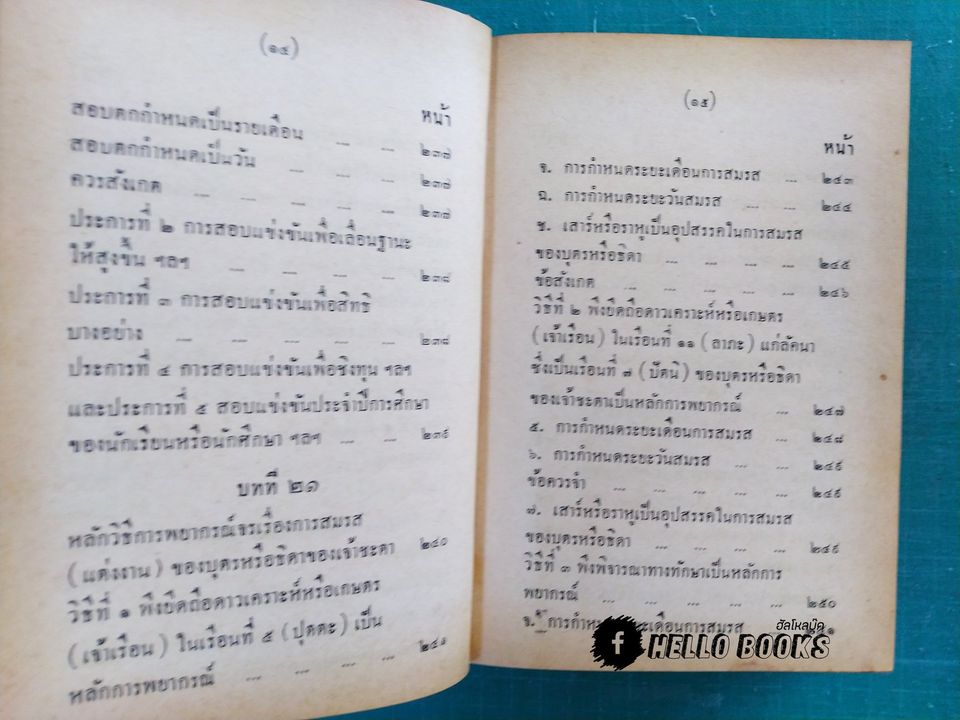 (๑๔)
หน้า
สอบตกกำหนดเป็นรายเดือน ... ... ๒๓๗
สอบตกกำหนดเป็นวัน ... ... ... ๒๓๗
ควรสังเกต ... ... ... ... ... ๒๓๗
ประการที่ ๒ การสอบแข่งขันเพื่อเลื่อนฐานะ
ให้สูงขึ้น ฯลฯ ... ... ... ... ๒๓๘
ประการที่ ๓ การสอบแข่งขันเพื่อสิทธิ
บางอย่าง ... ... ... ... ... ๒๓๘
ประการที่ ๔ การสอบแข่งขันเพื่อชิงทุน ฯลฯ
และประการที่ ๕ สอบแข่งขันประจำปีการศึกษา
ของนักเรียนหรือนักศึกษา ฯลฯ ... ... ๒๓๙
บทที่ ๒๑
หลักวิธีการพยากรณ์จรเรื่องการสมรส
(แต่งงาน) ของบุตรหรือธิดาของเจ้าชะตา ๒๔๐
วิธีที่ ๑ พึงยึดถือดาวเคราะห์หรือเกษตร
(เจ้าเรือน) ในเรือนที่ ๕ (ปุตตะ) เป็น
หลักการพยากรณ์ ... ... ... ๒๔๑
(๑๕)
หน้า
จ. การกำหนดระยะเดือนการสมรส ... ๒๔๓
ฉ. การกำหนดระยะวันสมรส ... ... ๒๔๔
ช. เสาร์หรือราหูเป็นอุปสรรคในการสมรส
ของบุตรหรือธิดา ... ... ... ... ๒๔๕
ข้อสังเกต ... ... ... ... ... ๒๔๖
วิธีที่ ๒ พึงยึดถือดาวเคราะห์หรือเกษตร
(เจ้าเรือน) ในเรือนที่ ๑๑ (ลาภะ) แก่ลัคนา
ซึ่งเป็นเรือนที่ ๗ (ปัตนิ) ของบุตรหรือธิดา
ของเจ้าชะตาเป็นหลักการพยากรณ์ ... ๒๔๗
๕. การกำหนดระยะเดือนการสมรส ... ๒๔๘
๖. การกำหนดระยะวันสมรส ... ... ๒๔๙
ข้อควรจำ ... ... ... ... ... ๒๔๙
๗. เสาร์หรือราหูเป็นอุปสรรคในการสมรส
ของบุตรหรือธิดา ... ... ... ... ๒๔๙
วิธีที่ ๓ พึงพิจารณาทางทักษาเป็นหลักการ
พยากรณ์ ... ... ... ... ... ๒๕๐
จ. การกำหนดระยะเดือนการสมรส
ฮัลโหลบุ๊ค
f HELLO BOOKS